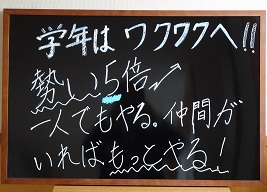 学年は ワクワクへ!!
勢い5倍
一人でもやる。仲間が
いればもっとやる!